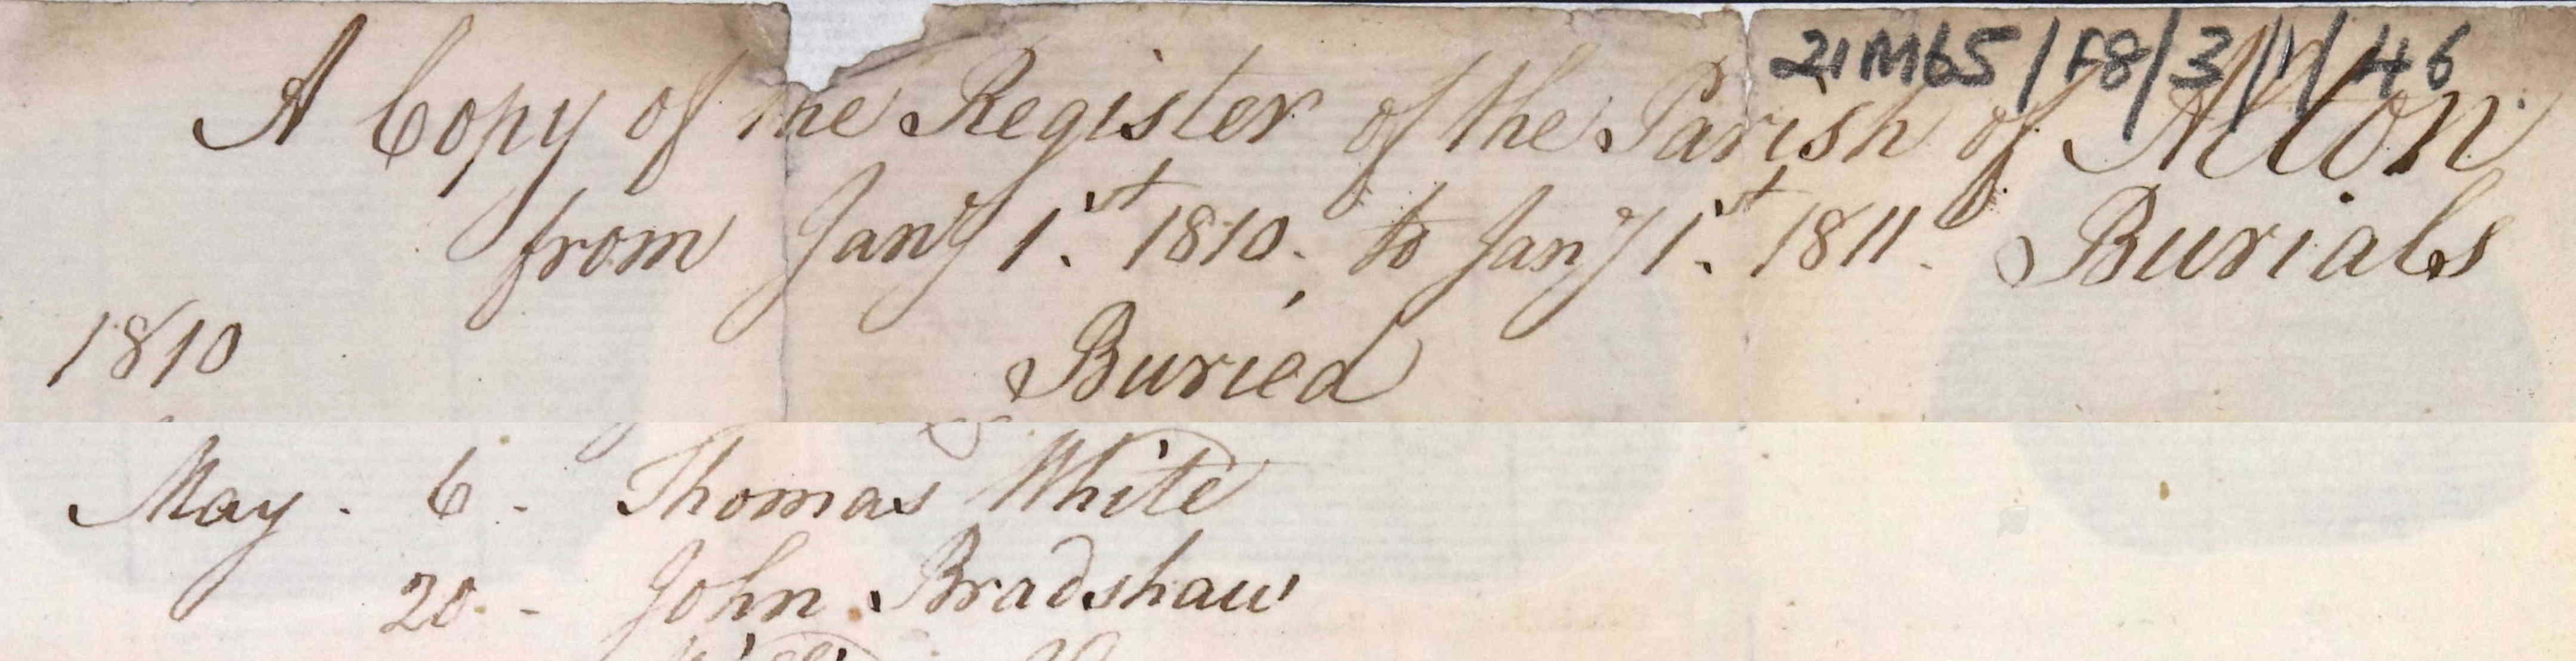 21M65/F8/3/1/46
A Copy of the Register of the Parish of Alton
from Jany 1.st 1810. to Jany 1.st 1811. Burials
1810 Buried
May. 6. Thomas White
20. - John Bradshaw